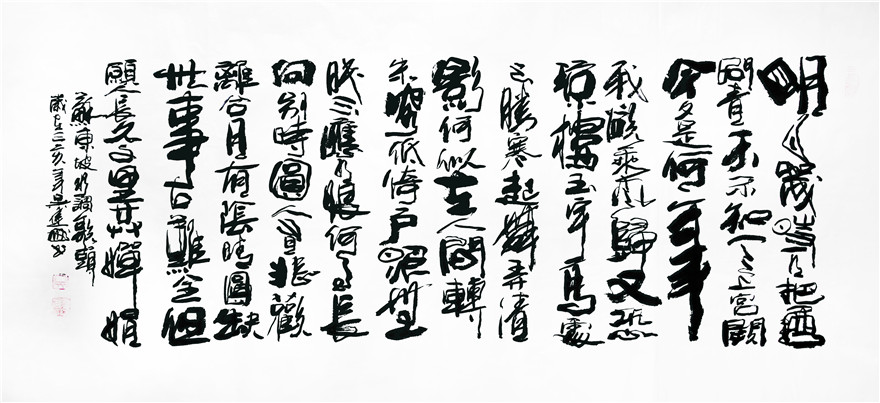 明月幾時有把酒
問青天不知天上宮闕
今夕是何年
我欲乘風歸又恐
瓊樓玉宇高處
不勝寒起舞弄清
影何似在人間轉
朱閣低綺戶照無
眠不應有恨何事長
向別時圓人有悲歡
離合月有陰晴圓缺
此事古難全但
願人長久千里共嬋娟
蘇東坡水調歌頭
歲在